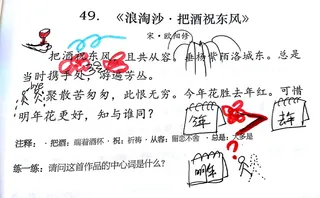 49. 《浪淘沙·把酒祝东风》
宋·欧阳修
把酒祝东风,且共从容。垂杨紫陌洛城东。总是
当时携手处,游遍芳丛。
聚散苦匆匆,此恨无穷。今年花胜去年红。可惜
明年花更好,知与谁同?
今年
去年
明年
?
注释:·把酒:端着酒杯·祝:祈祷·从容:留恋不舍·总是:大多是
练一练:请问这首作品的中心词是什么?